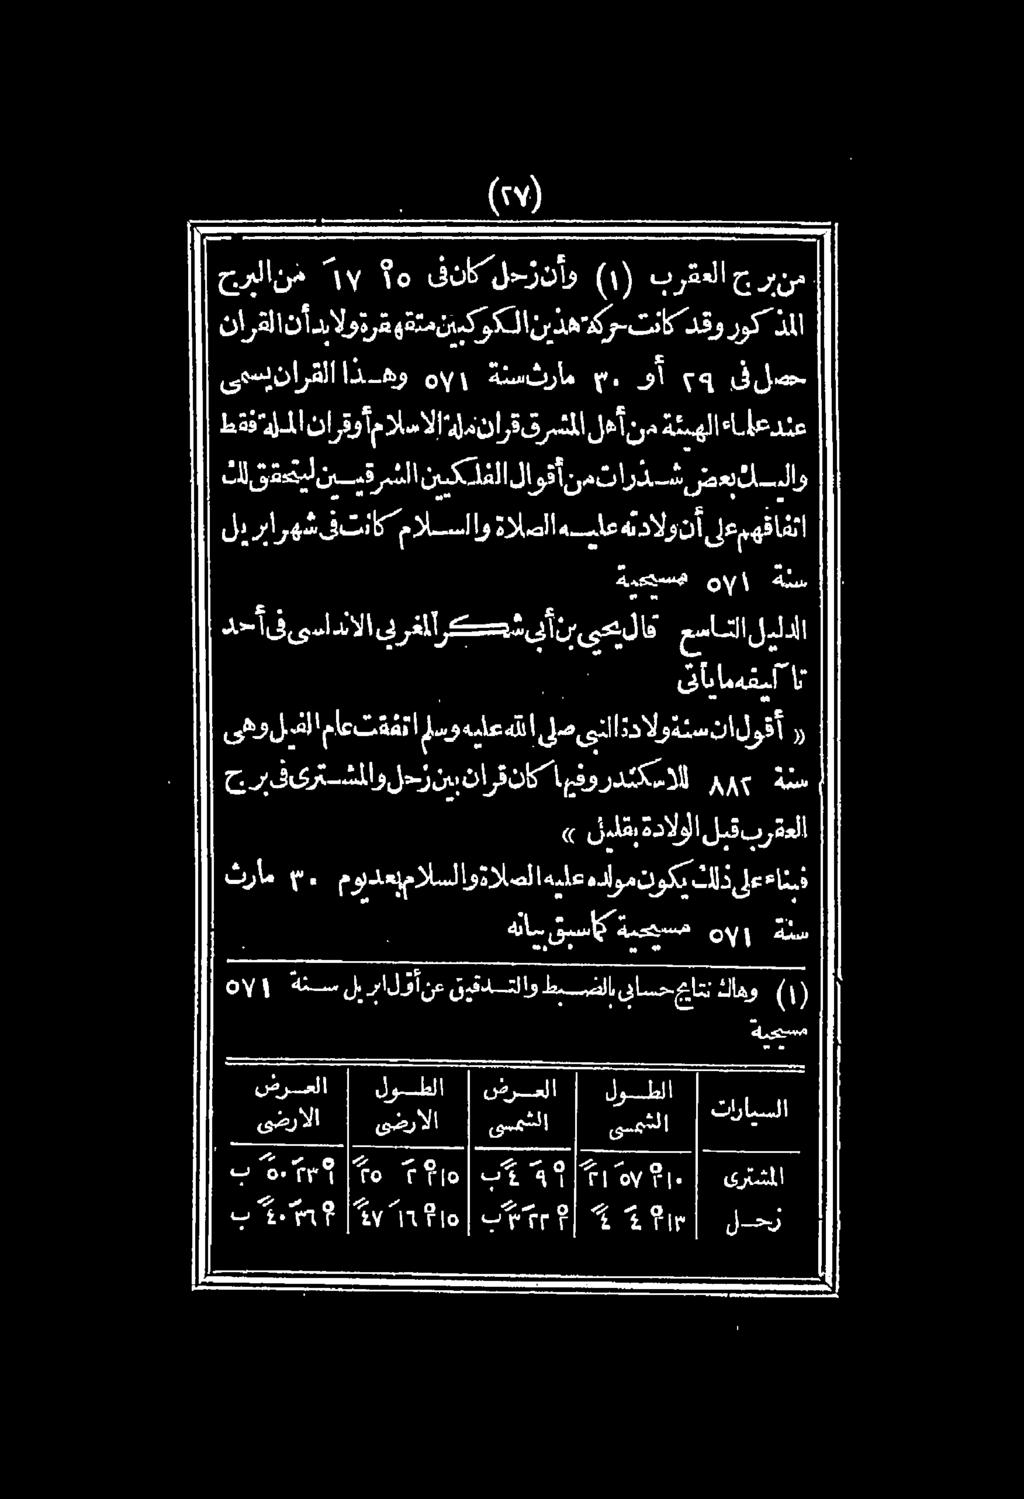 (٢٧)
من برج العقرب (١) وأن زحل كان فى ٥° ١٧َ من البرج
المذكور وقد كانت حركة هذين الكوكبين متقهقرة ولا بد أن القران
حصل فى ٢٩ أو ٣٠ مارث سنة ٥٧١ وهذا القران يسمى
عند علماء الهيئة من أهل المشرق قران ملة الاسلام أو قران الملة فقط
واليك بعض شذرات من أقوال الفلكيين الشرقيين ليتحقق لك
اتفاقهم على أن ولادته عليه الصلاة والسلام كانت فى شهر ابريل
سنة ٥٧١ مسيحية
الدليل التاسع قال يحيى بن أبى شكر المغربى الاندلسى فى أحد
تآليفه ما يأتى
« أقول ان سنة ولادة النبى صلى الله عليه وسلم اتفقت عام الفيل وهى
سنة ٨٨٢ للاسكندر وفيها كان قران بين زحل والمشترى فى برج
العقرب قبل الولادة بقليل »
فبناء على ذلك يكون مولده عليه الصلاة والسلام بعد يوم ٣٠ مارث
سنة ٥٧١ مسيحية كما سبق بيانه
(١) وهاك نتايج حسابى بالضبط والتدقيق عن أول ابريل سنة ٥٧١
مسيحية
السيارات الطول الشمسى العرض الشمسى الطول الارضى العرض الارضى
المشترى ٢١٠° ٥٧َ ٢١ً ١° ٩َ ٤ً ب ٢١٥° ٢َ ٢٥ً ١° ٢٣َ ٥٠ً ب
زحل ٢١٣° ٤َ ٤ً ٢° ٢٢َ ٣ً ب ٢١٥° ١٦َ ٤٧ً ٢° ٣٦َ ٤٠ً ب